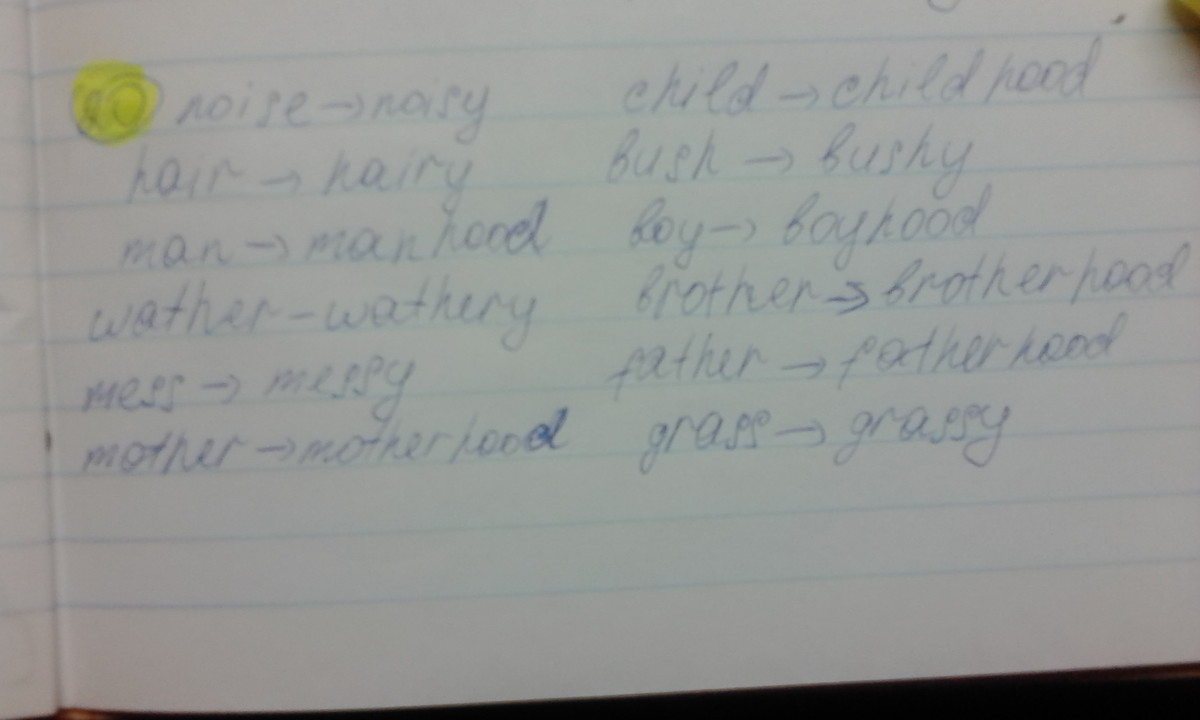 20 noise → noisy child → childhood
hair → hairy bush → bushy
man → manhood boy → boyhood
wather - wathery brother → brotherhood
mess → messy father → fatherhood
mother → motherhood grass → grassy